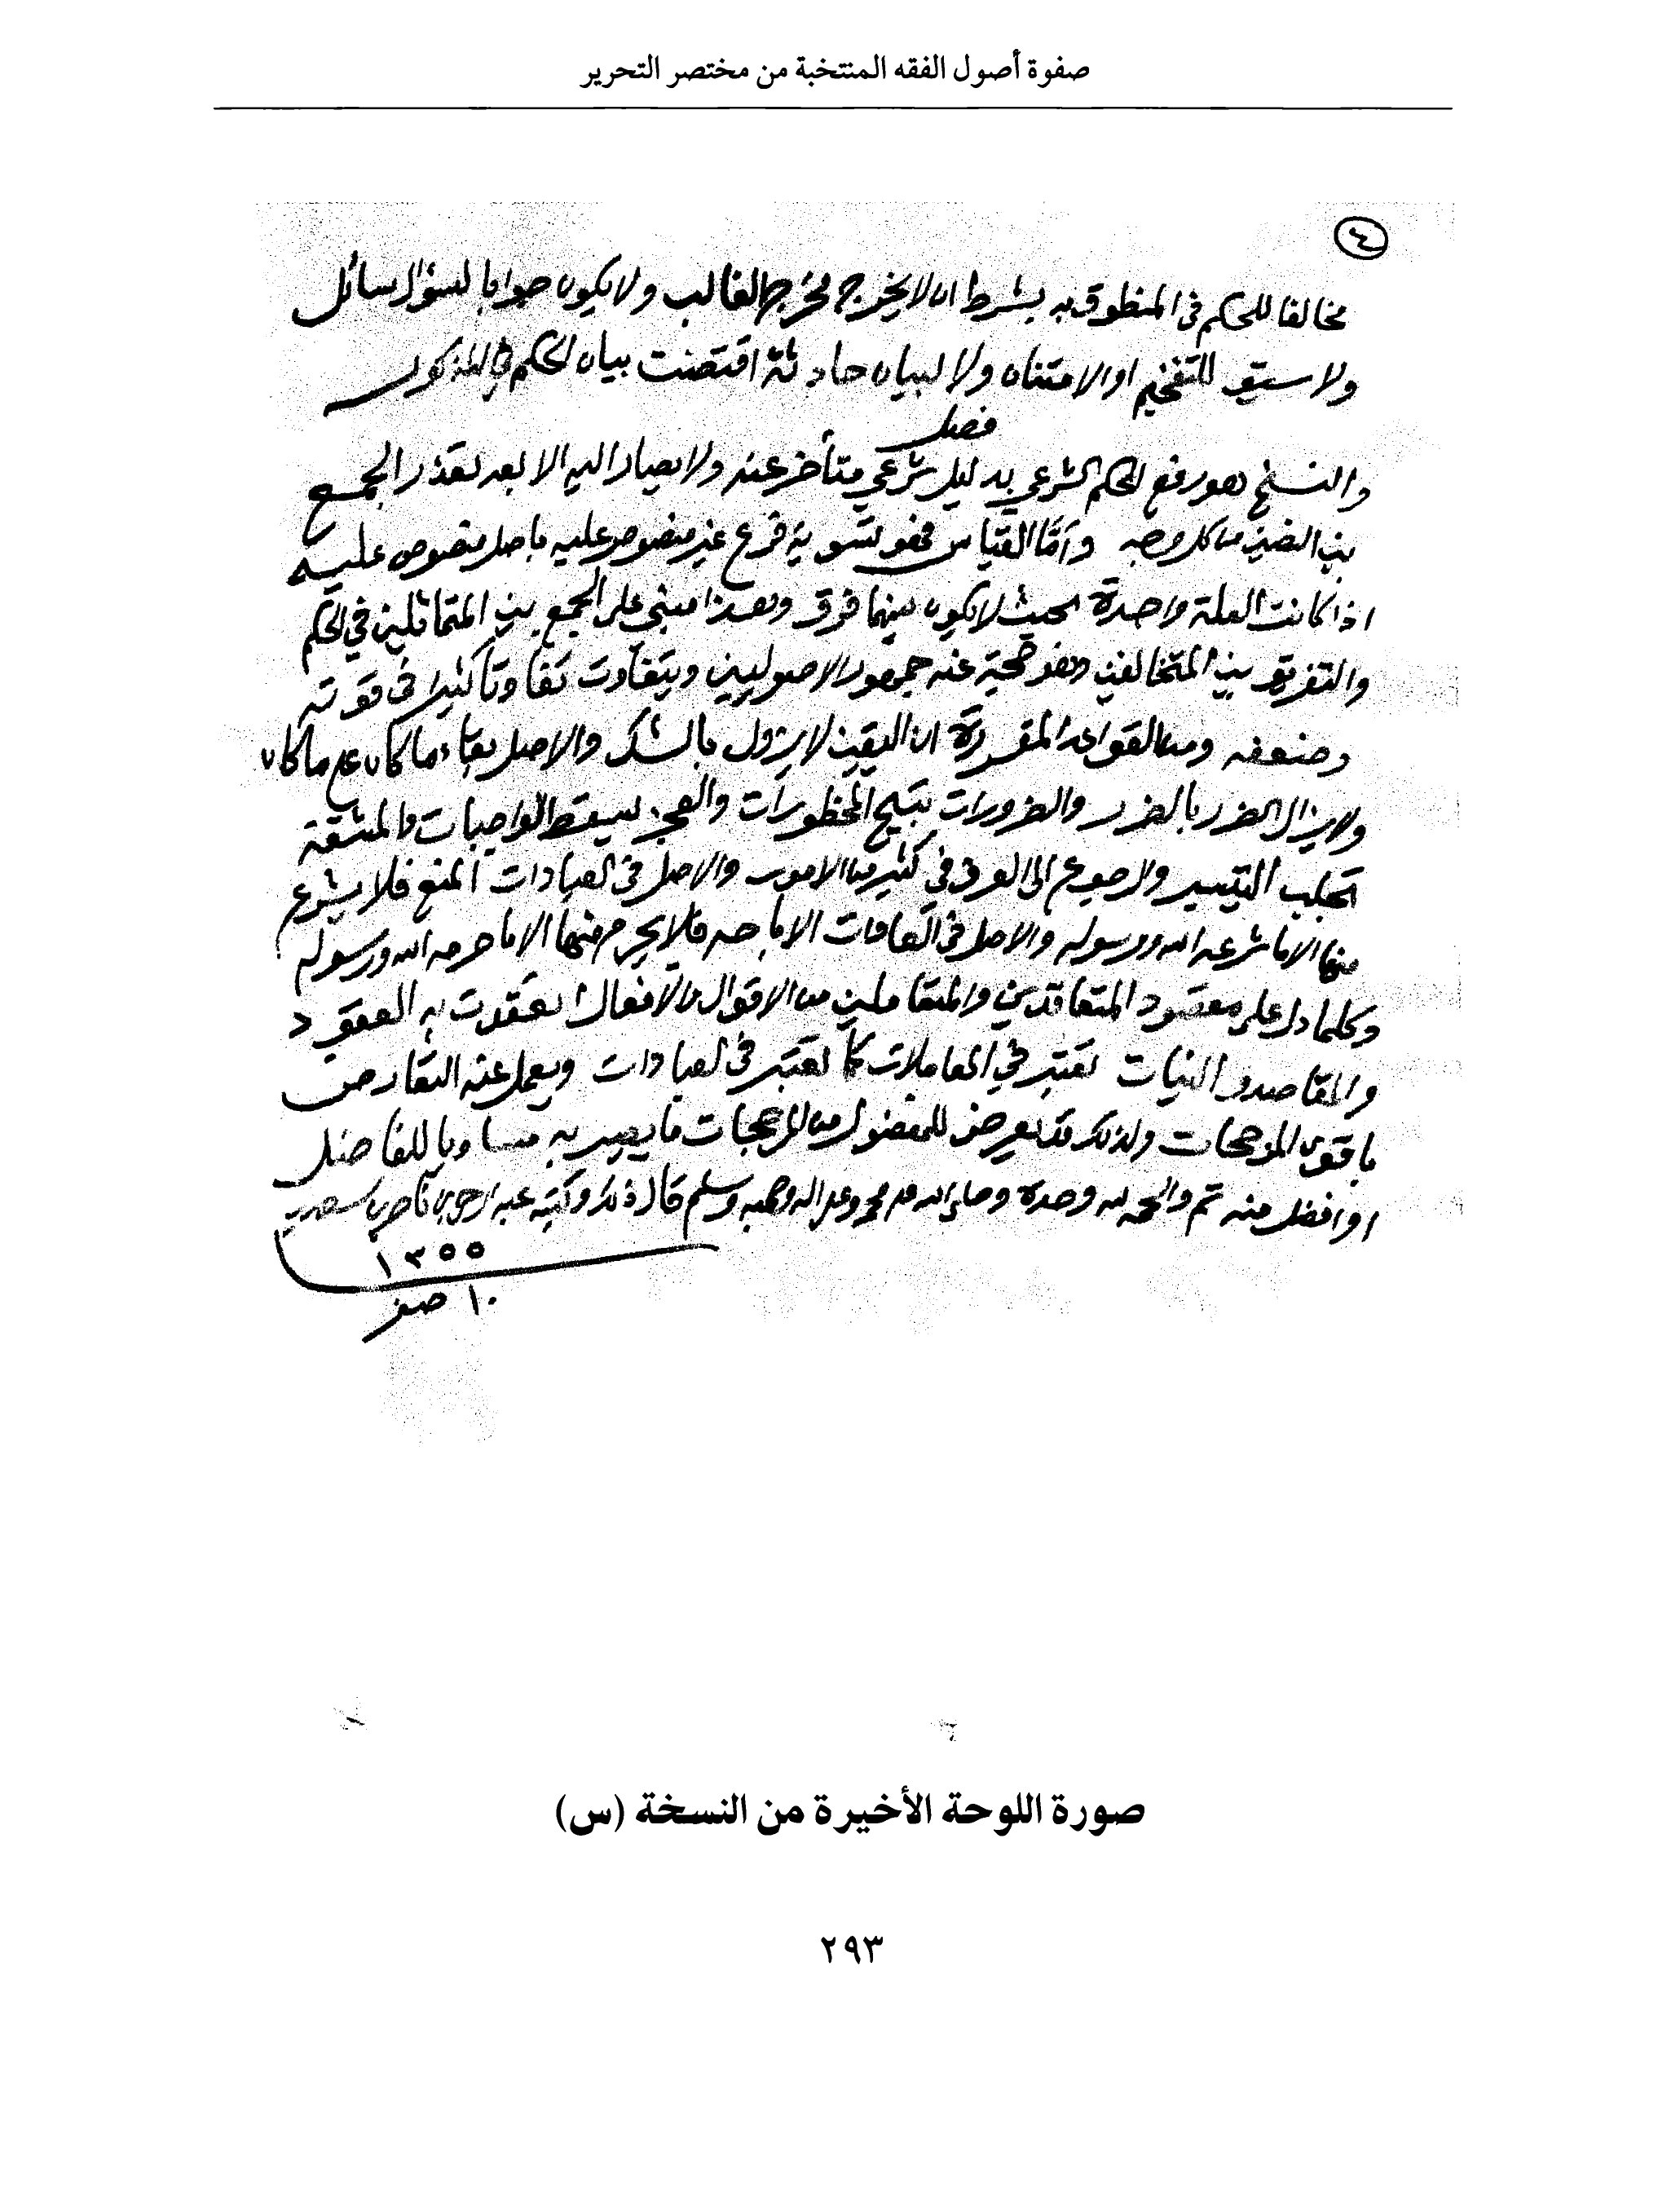 صفوة أصول الفقه المنتخبة من مختصر التحرير
٤
مخالفا للحكم في المنطوق به بشرط ان لا يخرج مخرج الغالب ولا يكون جوابا لسؤال سائل
ولا سيق للتفخيم او الامتنان ولا لبيان حادثة اقتضت بيان الحكم في المذكور
فصل
والنسخ هو رفع الحكم الشرعي بدليل شرعي متأخر عنه ولا يصار اليه الا بعد تعذر الجمع
بين النصين من كل وجه وأمّا القياس فهو تسوية فرع غير منصوص عليه باصل منصوص عليه
اذا كانت العلة واحدة بحيث لا يكون بينهما فرق وهذا مبني على الجمع بين المتماثلين في الحكم
والتفريق بين المتخالفين وهو حجة عند جمهور الاصوليين ويتفاوت تفاوتا كثيرا في قوته
وضعفه ومن القواعد المقررة ان اليقين لا يزول بالشك والاصل بقاء ما كان على ما كان
ولا يزال الضرر بالضرر والضرورات تبيح المحظورات والعجز يسقط الواجبات والمشقة
تجلب التيسير والرجوع الى العرف في كثير من الامور والاصل في العبادات المنع فلا يشرع
منها الا ما شرعه الله ورسوله والاصل في العادات الاباحه فلا يحرم منها الا ما حرمه الله ورسوله
وكلما دل على مقصود المتعاقدين والمتعاملين من الاقوال والافعال انعقدت به العقود
والمقاصد والنيات تعتبر في المعاملات كما تعتبر في العبادات ويعمل عند التعارض
باقوى المرجحات ولذلك قد يعرض للمفضول من المرجحات ما يصير به مساويا للفاضل
او افضل منه تم والحمد لله وحده وصلى الله على محمد وعلى اله وصحبه وسلم قال ذلك وكتبه عبد الرحمن بن ناصر بن سعدي
١٣٥٥
١٠ صفر
صورة اللوحة الأخيرة من النسخة (س)
٢٩٣